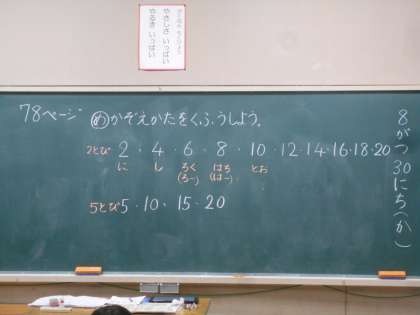 やさしさ いっぱい
やるき いっぱい
78ページ
め かぞえかたをくふうしよう。
2とび 2・4・6・8・10・12・14・16・18・20
に し ろく はち とお
(ろー) (はー)
5とび 5・10・15・20
8がつ30にち(か)